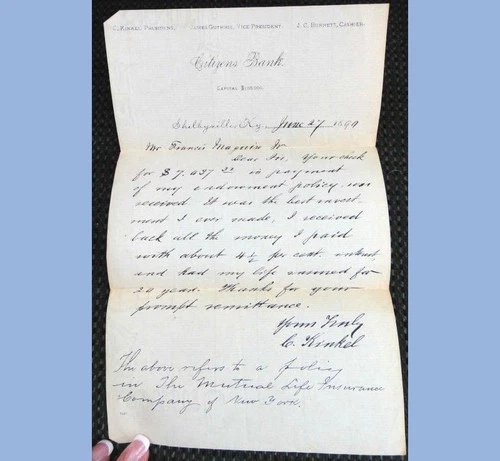 C. Kinkel, President. James Guthrie, Vice President. J. C. Burnett, Cashier.
Citizens Bank
Capital
Shelbyville, Ky. June 27 1899
Mr Francis
Dear Sir, Your check
for $7,437 in payment
of my endowment policy was
received. It was the best invest-
ment I ever made, I received
back all the money I paid
with about 4½ per cent. interest
and had my life insured for
20 year. Thanks for your
prompt remittance.
Yours Truly
C. Kinkel
The above refers to a policy
in The Mutual Life Insurance
Company of New York.